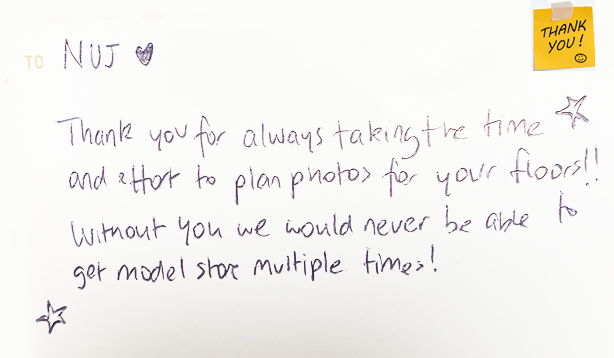 TO NUJ
THANK
YOU!
Thank you for always taking the time
and effort to plan photos for your floors!!
Without you we would never be able to
get model store multiple times!